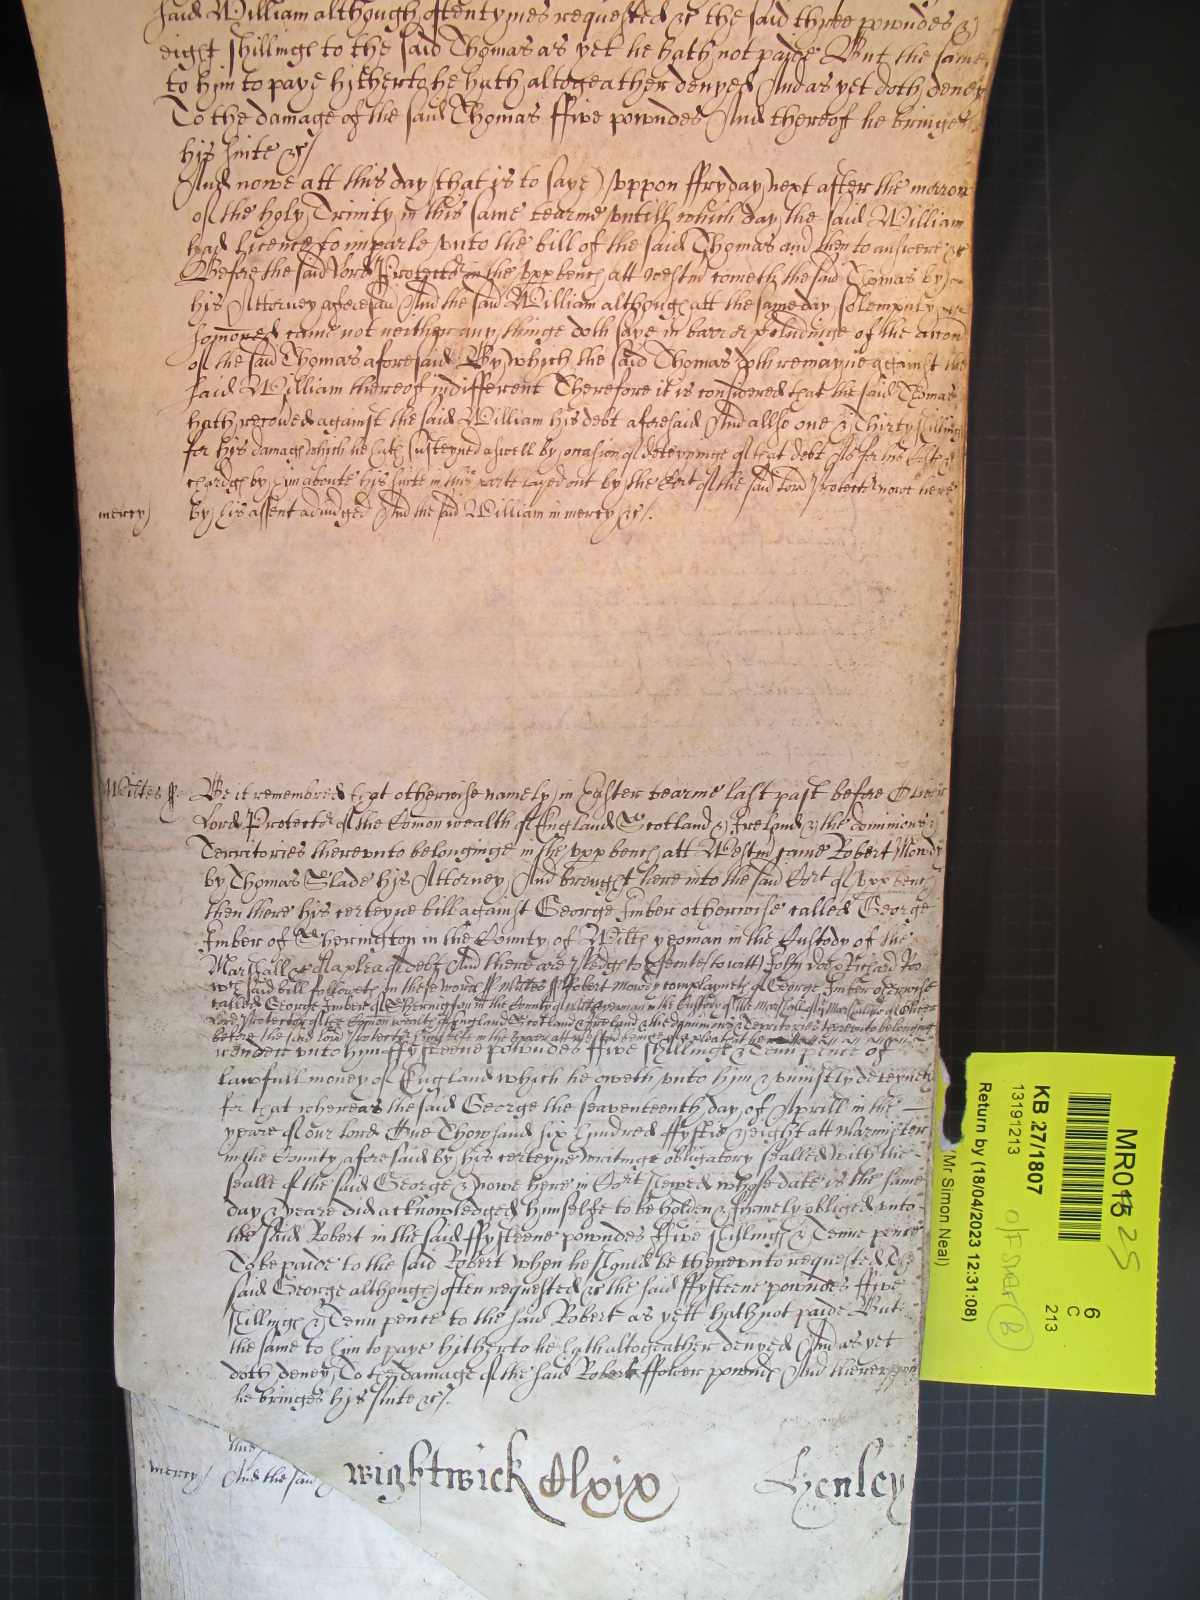 said William although oftentymes requested &c the said three powndes &
eight shillings to the said Thomas as yet he hath not paide But the same
to him to paye hitherto he hath altogeather denyed And as yet doth deney
To the damage of the said Thomas ffive powndes And thereof he bringes
his suite &c/
And nowe att this day (that is to saye) vppon ffryday next after the morrow
of the holy Trinity in this same tearme vntill which day the said William
had licence to imparle vnto the bill of the said Thomas and then to answere &c
Before the said Lord Protector in the vpp bench att Westm cometh the said Thomas by
his Attorney aforesaid And the said William although att the same day solempnly
came not neither any thinge doth saye in barr or p'cludinge of the accon
of the said Thomas aforesaid By which the said Thomas doth remayne against the
said William thereof indifferent Therefore it is considered that the said Thomas
hath recoved against the said William his debt aforesaid And allso one & Thirty shillings
for his damages which he hath susteyned aswell by occasion of deteyninge of that debt As for his Costes &
chardges by him aboute his suite in this parte layed out by the Cort of the said Lord Protector nowe here
mercy By his assent adiudged And the said William in mercy &c/.
Wiltes ss. Be it remembred that otherwise namely in Easter tearme last past before Oliver
Lord Protector of the Comon wealth of England Scotland & Ireland & the dominions &
Territories therevnto belonginge in the vpp bench att Westm came Robert Mondy
by Thomas Slade his Attorney And brought here into the said Cort of vpp bench
then there his certeyne bill against George Imber otherwise called George
Imber of Sherington in the County of Wiltes yeoman in the Custody of the
Marshall &c of a plea of debt And there are pledges to p'secute to witt John Doe & Richard Roo
wch said bill followeth in these words ss Wiltes ss Robert Mondy complayneth of George Imber otherwise
called George Imber of Sherrington in the County of Wiltes yeoman in the Custody of the Marshall of the Marshallsye of Oliver
Lord Protector of the Comon wealth of England Scotland & Ireland & the dominions & Territories therevnto belonging
before the said Lord Protector himselfe in the vpper bench att Westm beinge of a plea that he
render vnto him ffyfteene powndes ffive shillings & Tenn pence of
lawfull money of England which he oweth vnto him & vniustly deteyneth
for that whereas the said George the seaventeenth day of Aprill in the
yeare of our Lord One Thowsand six hundred ffyftie & eight att Warmister
in the County aforesaid by his certeyne writinge obligatory sealled with the
sealle of the said George & nowe here in Cort shewed whose date is the same
day & yeare did acknowledged himselfe to be holden & firmely obliged vnto
the said Robert in the said ffyfteene powndes ffive shillings & Tenne pence
To be paide to the said Robert when he should be therevnto requested The
said George although often requested &c the said ffyfteene powndes ffive
shillings & Tenn pence to the said Robert as yett hath not paide But
the same to him to paye hitherto he hath altogeather denyed And as yet
doth deney To the damage of the said Robert ffower powndes And therevppon
he bringes his suite &c/.
mercy And the said
Wightwick Clxix Henley
MR015 25
6
C
213
KB 27/1807
13191213
Return by (18/04/2023 12:31:08)
(Mr Simon Neal)